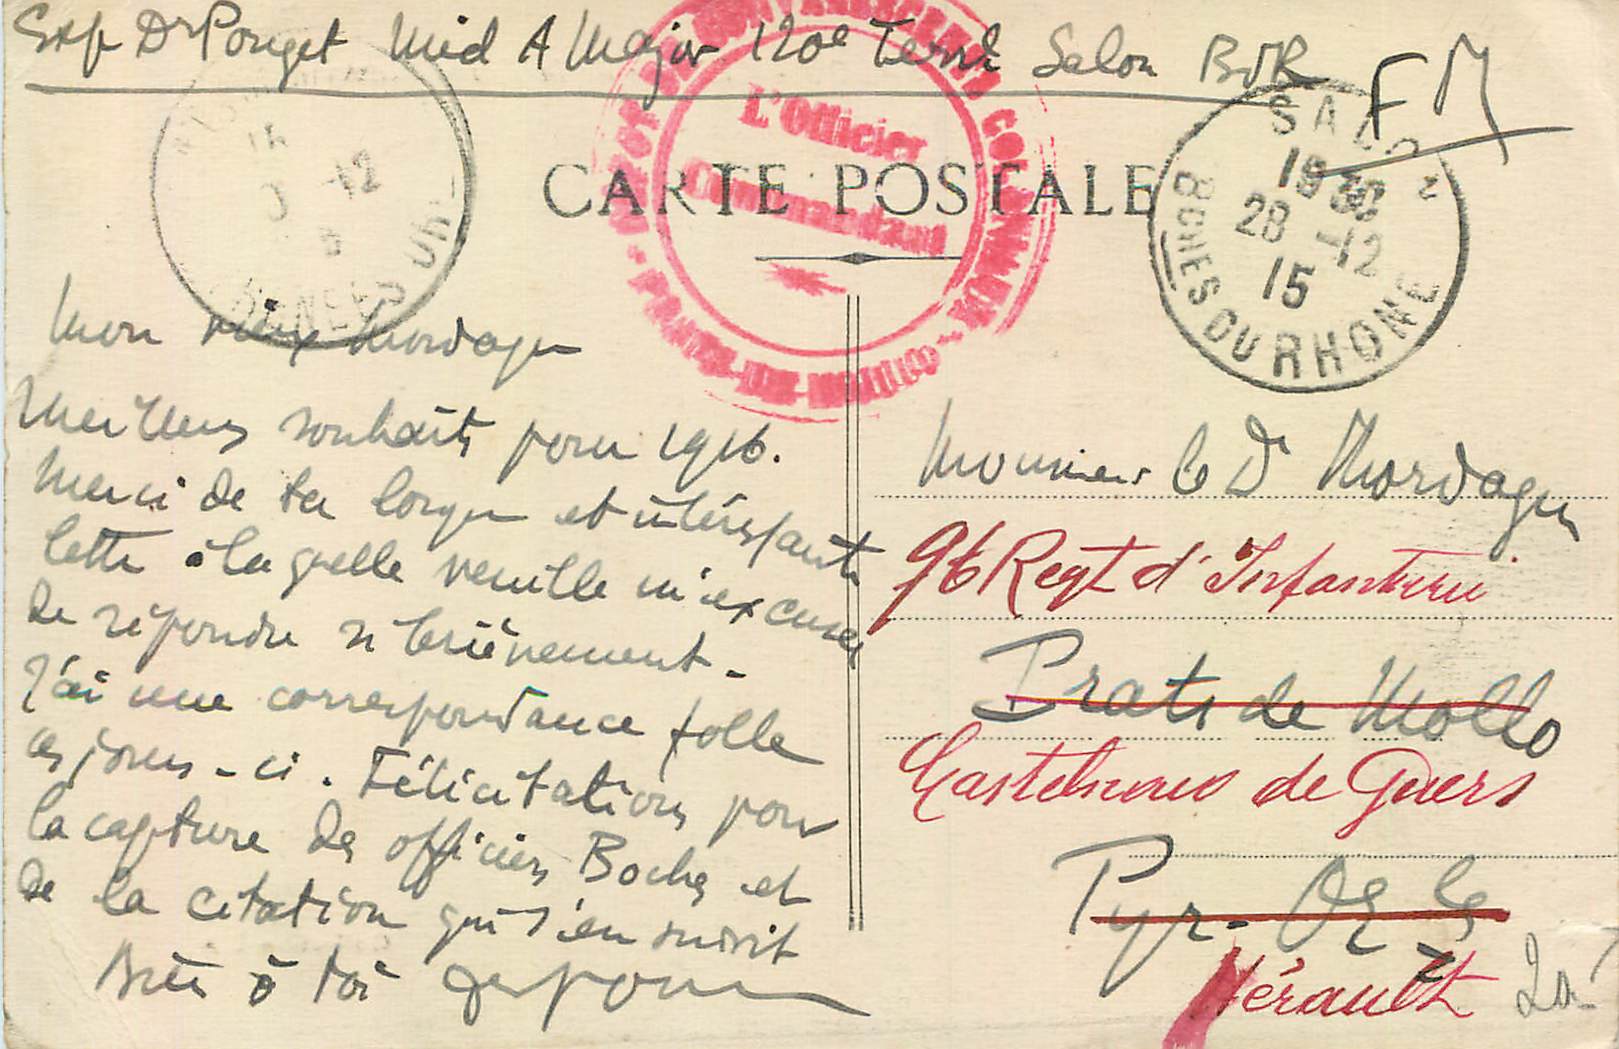 Exp Dr Pouget Méd A Major 120e Terrl Salon BdR
F M
CARTE POSTALE
L'Officier
Commandant
SALON
1930
28 -12
15
BCHES DU RHONE
15
-12
Mon vieux Mordagne
Meilleurs souhaits pour 1916.
Merci de ta longue et intéressante
lettre à laquelle veuille m'excuser
de répondre si brièvement -
J'ai une correspondance folle
ces jours-ci. Félicitations pour
la capture des officiers Boches et
de la citation qui s'en suivit
Bien à toi
Monsieur le Dr Mordagne
96 Regt d'Infanterie
Prats de Mollo
Castelnau de Guers
Pyr. Ores
Hérault